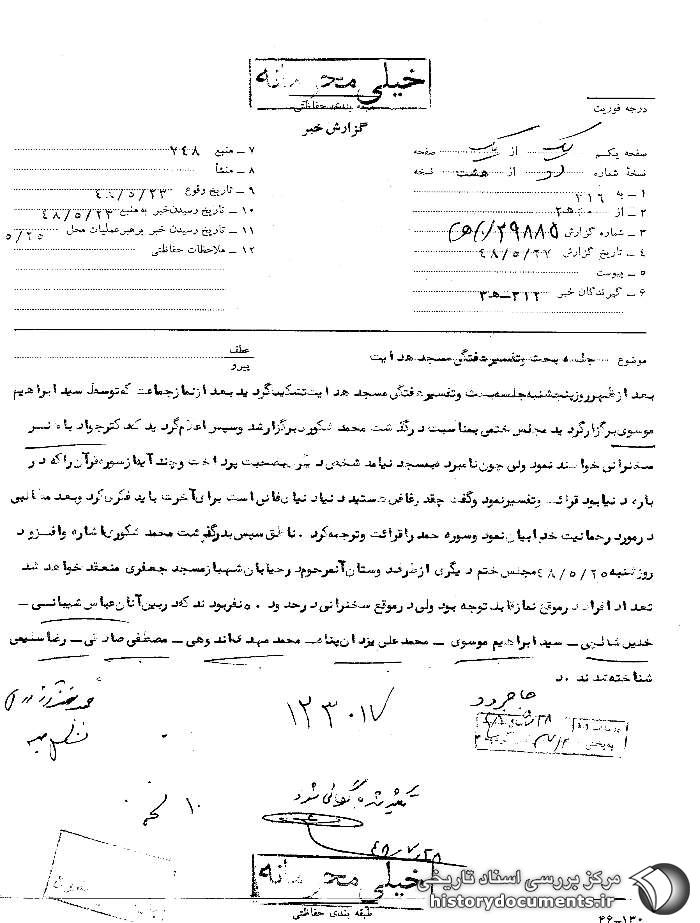 خیلی محرمانه
طبقه بندی حفاظتی
درجه فوریت
گزارش خبر
صفحه یکم از یک صفحه
نسخهٔ شماره دو از هشت نسخه
۱ ــ به ۳۱۶
۲ ــ از ۲۰ هـ
۳ ــ شماره گزارش ۲۹۸۸۵
۴ ــ تاریخ گزارش ۴۸/۵/۲۷
۵ ــ پیوست
۶ ــ گیرندگان خبر ۳۱۲ــ هـ۳
۷ ــ منبع ۷۴۸
۸ ــ منشأ
۹ ــ تاریخ وقوع ۴۸/۵/۲۳
۱۰ ــ تاریخ رسیدن خبر به منبع ۴۸/۵/۲۳
۱۱ ــ تاریخ رسیدن خبر برهبر عملیات محل ۵/۲۵
۱۲ ــ ملاحظات حفاظتی
موضوع جلسه بحث وتفسیرهفتگی مسجد هدایت
عطف
پیرو
بعد ازظهر روز پنجشنبه جلسه بحث وتفسیرهفتگی مسجد هدایت تشکیل گردید بعد ازنماز جماعت که توسط سید ابراهیم
موسوی برگزار گردید مجلس ختمی بمناسبت درگذشت محمد شکوری برگزارشد وسپس اعلام گردید که دکتر جواد باهنر
سخنرانی خواهند نمود ولی چون نامبرده بمسجد نیامد شخص دیگری بصحبت پرداخت وچند آیه از سوره قرآن را که در
باره دنیا بود قرائت وتفسیرنمود وگفت چقدر غافل هستید دنیا دنیای فانی است برای آخرت باید فکری کرد وبعد مطالبی
درمورد رحمانیت خدا بیان نمود وسوره حمد را قرائت وترجمه کرد . ناطق سپس بدرگذشت محمد شکوری اشاره وافزود
روز شنبه ۴۸/۵/۲۵ مجلس ختم دیگری ازطرف دوستان آنمرحوم در خیابان شهباز مسجد جعفری منعقد خواهد شد
تعداد افراد درموقع نماز قابل توجه بود ولی درموقع سخنرانی درحدود ۵۰ نفر بودند که دربین آنان عباس شیبانی ــ
خلیل ــ سید ابراهیم موسوی ــ محمد علی یزدان پناه ــ محمد مهدی ــ مصطفی صادقی ــ رضا سمیعی
شناخته شدند . د
۱۲۳۰۱۷
۱۰
تکثیر شده بایگانی شود
۴۸/۷/۲۸
خیلی محرمانه
طبقه بندی حفاظتی
۴۶ــ۱۳۰
مرکز بررسی اسناد تاریخی
historydocuments.ir